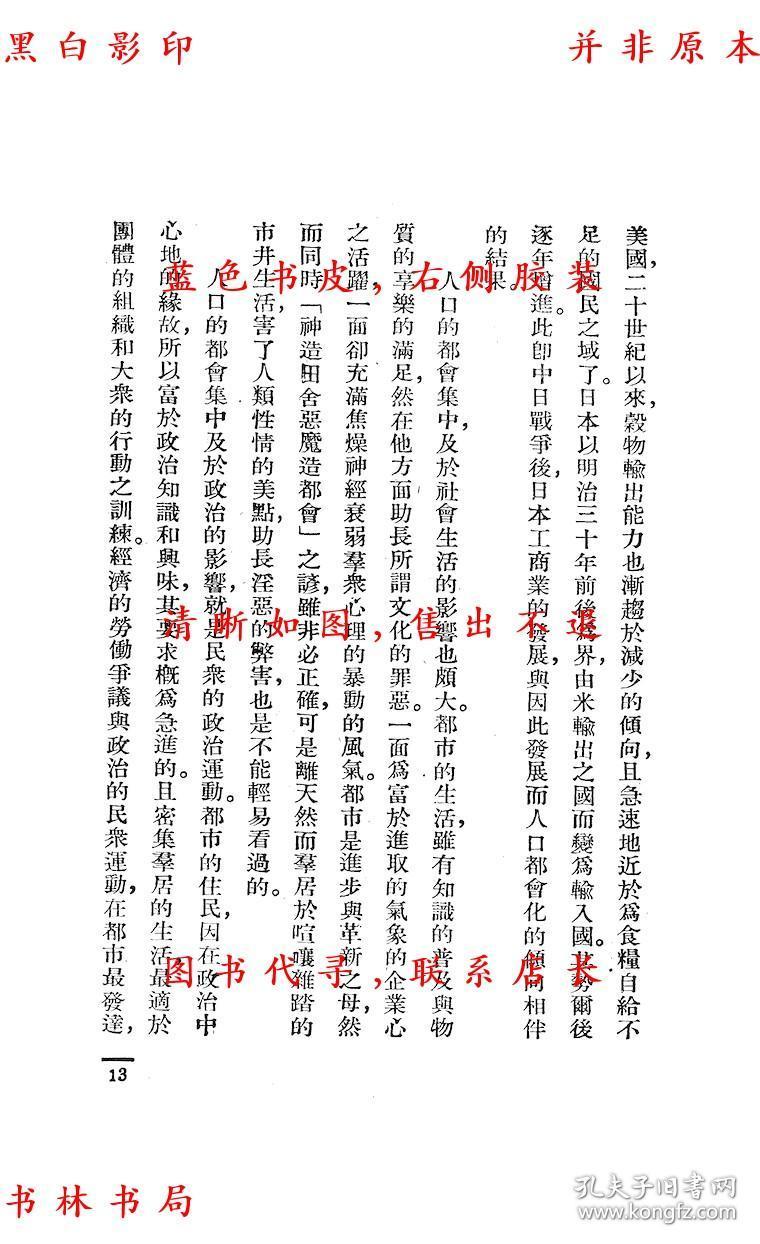 黑白影印
并非原本
美國，二十世紀以來，穀物輸出能力也漸趨於減少的傾向，且急速地近於爲食糧自給不
足的國民之域了。日本以明治三十年前後爲界，由米輸出之國而變爲輸入國。其勢爾後
逐年增進。此卽中日戰爭後，日本工商業的發展，與因此發展而人口都會化的傾向相伴
的結果。
人口的都會集中，及於社會生活的影響也頗大。都市的生活，雖有知識的普及與物
質的享樂的滿足，然在他方面助長所謂文化的罪惡。一面爲富於進取的氣象的企業心
之活躍，一面卻充滿焦燥神經衰弱羣衆心理的暴動的風氣。都市是進步與革新之母，然
而同時「神造田舍惡魔造都會」之諺，雖非必正確，可是離天然而羣居於喧嚷雜踏的
市井生活，害了人類性情的美點，助長淫惡的弊害，也是不能輕易看過的。
人口的都會集中及於政治的影響，就是民衆的政治運動。都市的住民，因在政治中
心地的緣故，所以富於政治知識和興味，其要求概爲急進的。且密集羣居的生活，最適於
團體的組織和大衆的行動之訓練。經濟的勞働爭議與政治的民衆運動，在都市最發達，
13
蓝色书皮，右侧胶装
清晰如图，售出不退
图书代寻，联系店长
书林书局
孔夫子旧书网
www.kongfz.com